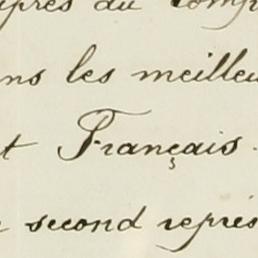 après du comp
ns les meilleu
t Français.
second repris